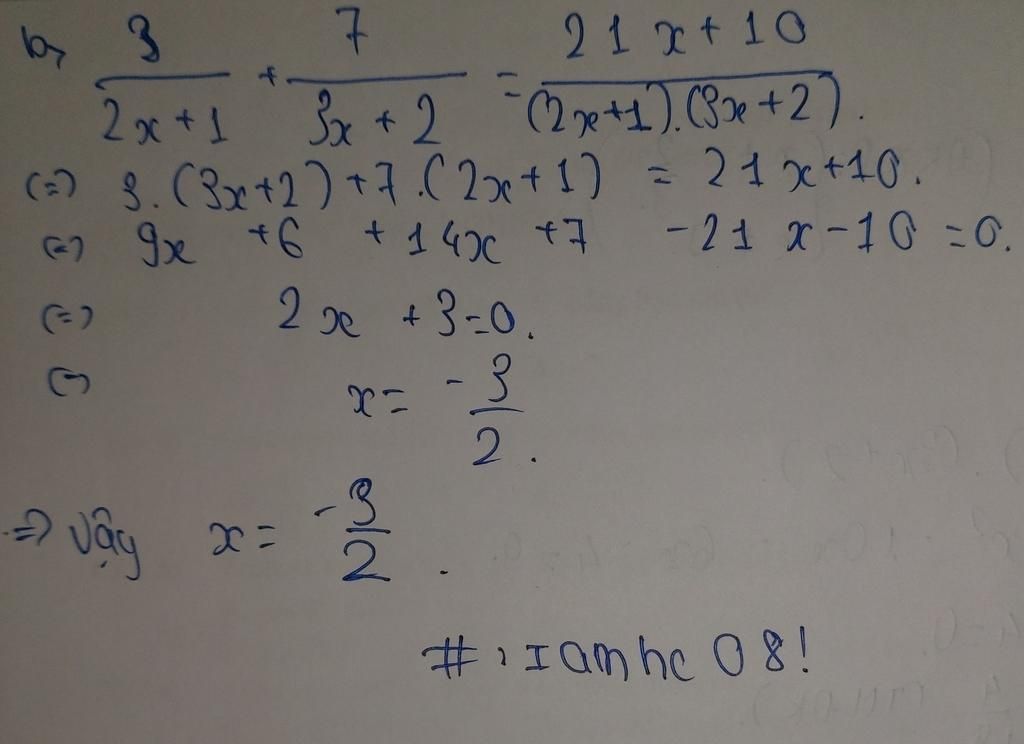 b, 3/(2x+1) + 7/(3x+2) = (21x+10)/((2x+1).(3x+2)).
(=) 3.(3x+2)+7.(2x+1) = 21x+10.
(=) 9x +6 +14x +7 -21x-10=0.
(=) 2x +3=0.
(=) x= -3/2.
=> Vậy x= -3/2.
#, I am hc 08!